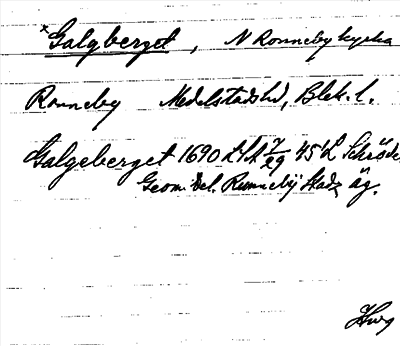 *Galgberget, N Ronneby kyrka
Ronneby Medelstads hd, Blek. l.
Galgeberget 1690 LSA 7/29 45 L Schröder
Geom. del. Runneby Stadz äg.